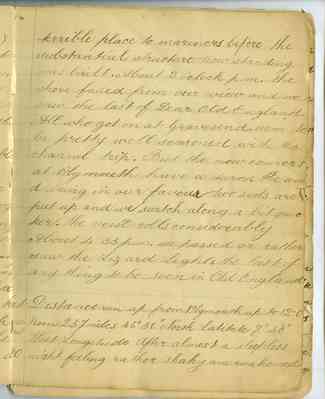 terrible place to mariners before the
substantial structure now standing
was built. About 2 o'clock p.m. the
shore faded from our view and we
saw the last of Dear Old England
All who got on at Gravesend seem to
be pretty well seasoned with the
channel trip. But the new comers
at Plymouth have a
wind in our favour two sails are
put up and we switch along a bit quic
ker. The vessel rolls considerably
About 4.35 p.m. we passed or rather
saw the Lizard Lights the last of
any thing to be seen in Old England
Distance run up from Plymouth up to 12.0
from 237 miles 46° 56' North Latitude 7° 58'
West Longitude After almost a sleepless
night feeling rather shaky are awakened